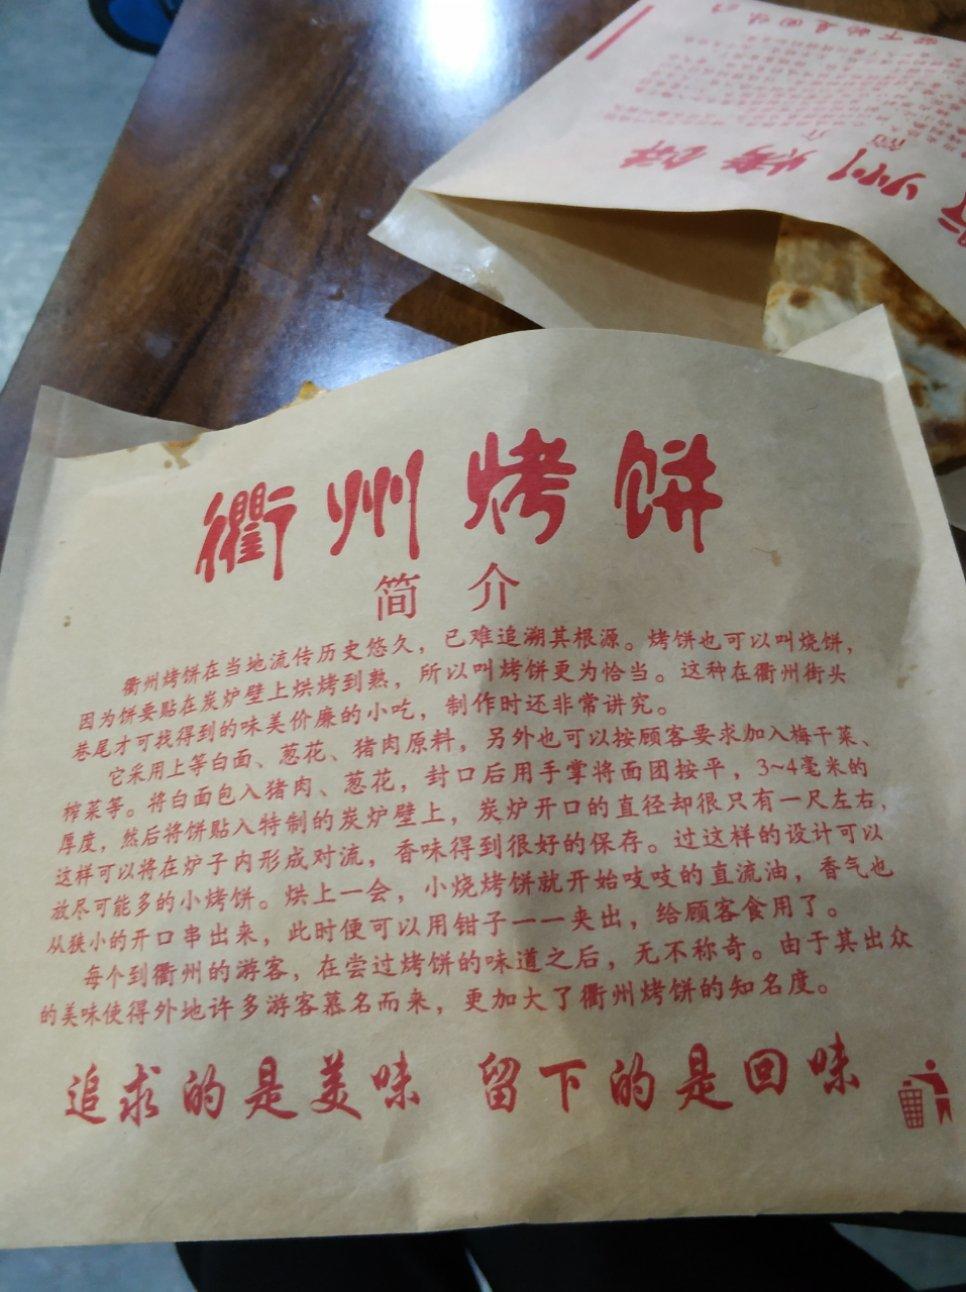 衢州烤饼
简 介
衢州烤饼在当地流传历史悠久，已难追溯其根源。烤饼也可以叫烧饼，
因为饼要贴在炭炉壁上烘烤到熟，所以叫烤饼更为恰当。这种在衢州街头
巷尾才可找得到的味美价廉的小吃，制作时还非常讲究。
它采用上等白面、葱花、猪肉原料，另外也可以按顾客要求加入梅干菜、
榨菜等。将白面包入猪肉、葱花，封口后用手掌将面团按平，3~4毫米的
厚度，然后将饼贴入特制的炭炉壁上，炭炉开口的直径却很只有一尺左右，
这样可以将在炉子内形成对流，香味得到很好的保存。过这样的设计可以
放尽可能多的小烤饼。烘上一会，小烧烤饼就开始吱吱的直流油，香气也
从狭小的开口串出来，此时便可以用钳子一一夹出，给顾客食用了。
每个到衢州的游客，在尝过烤饼的味道之后，无不称奇。由于其出众
的美味使得外地许多游客慕名而来，更加大了衢州烤饼的知名度。
追求的是美味 留下的是回味
州烤饼
简介